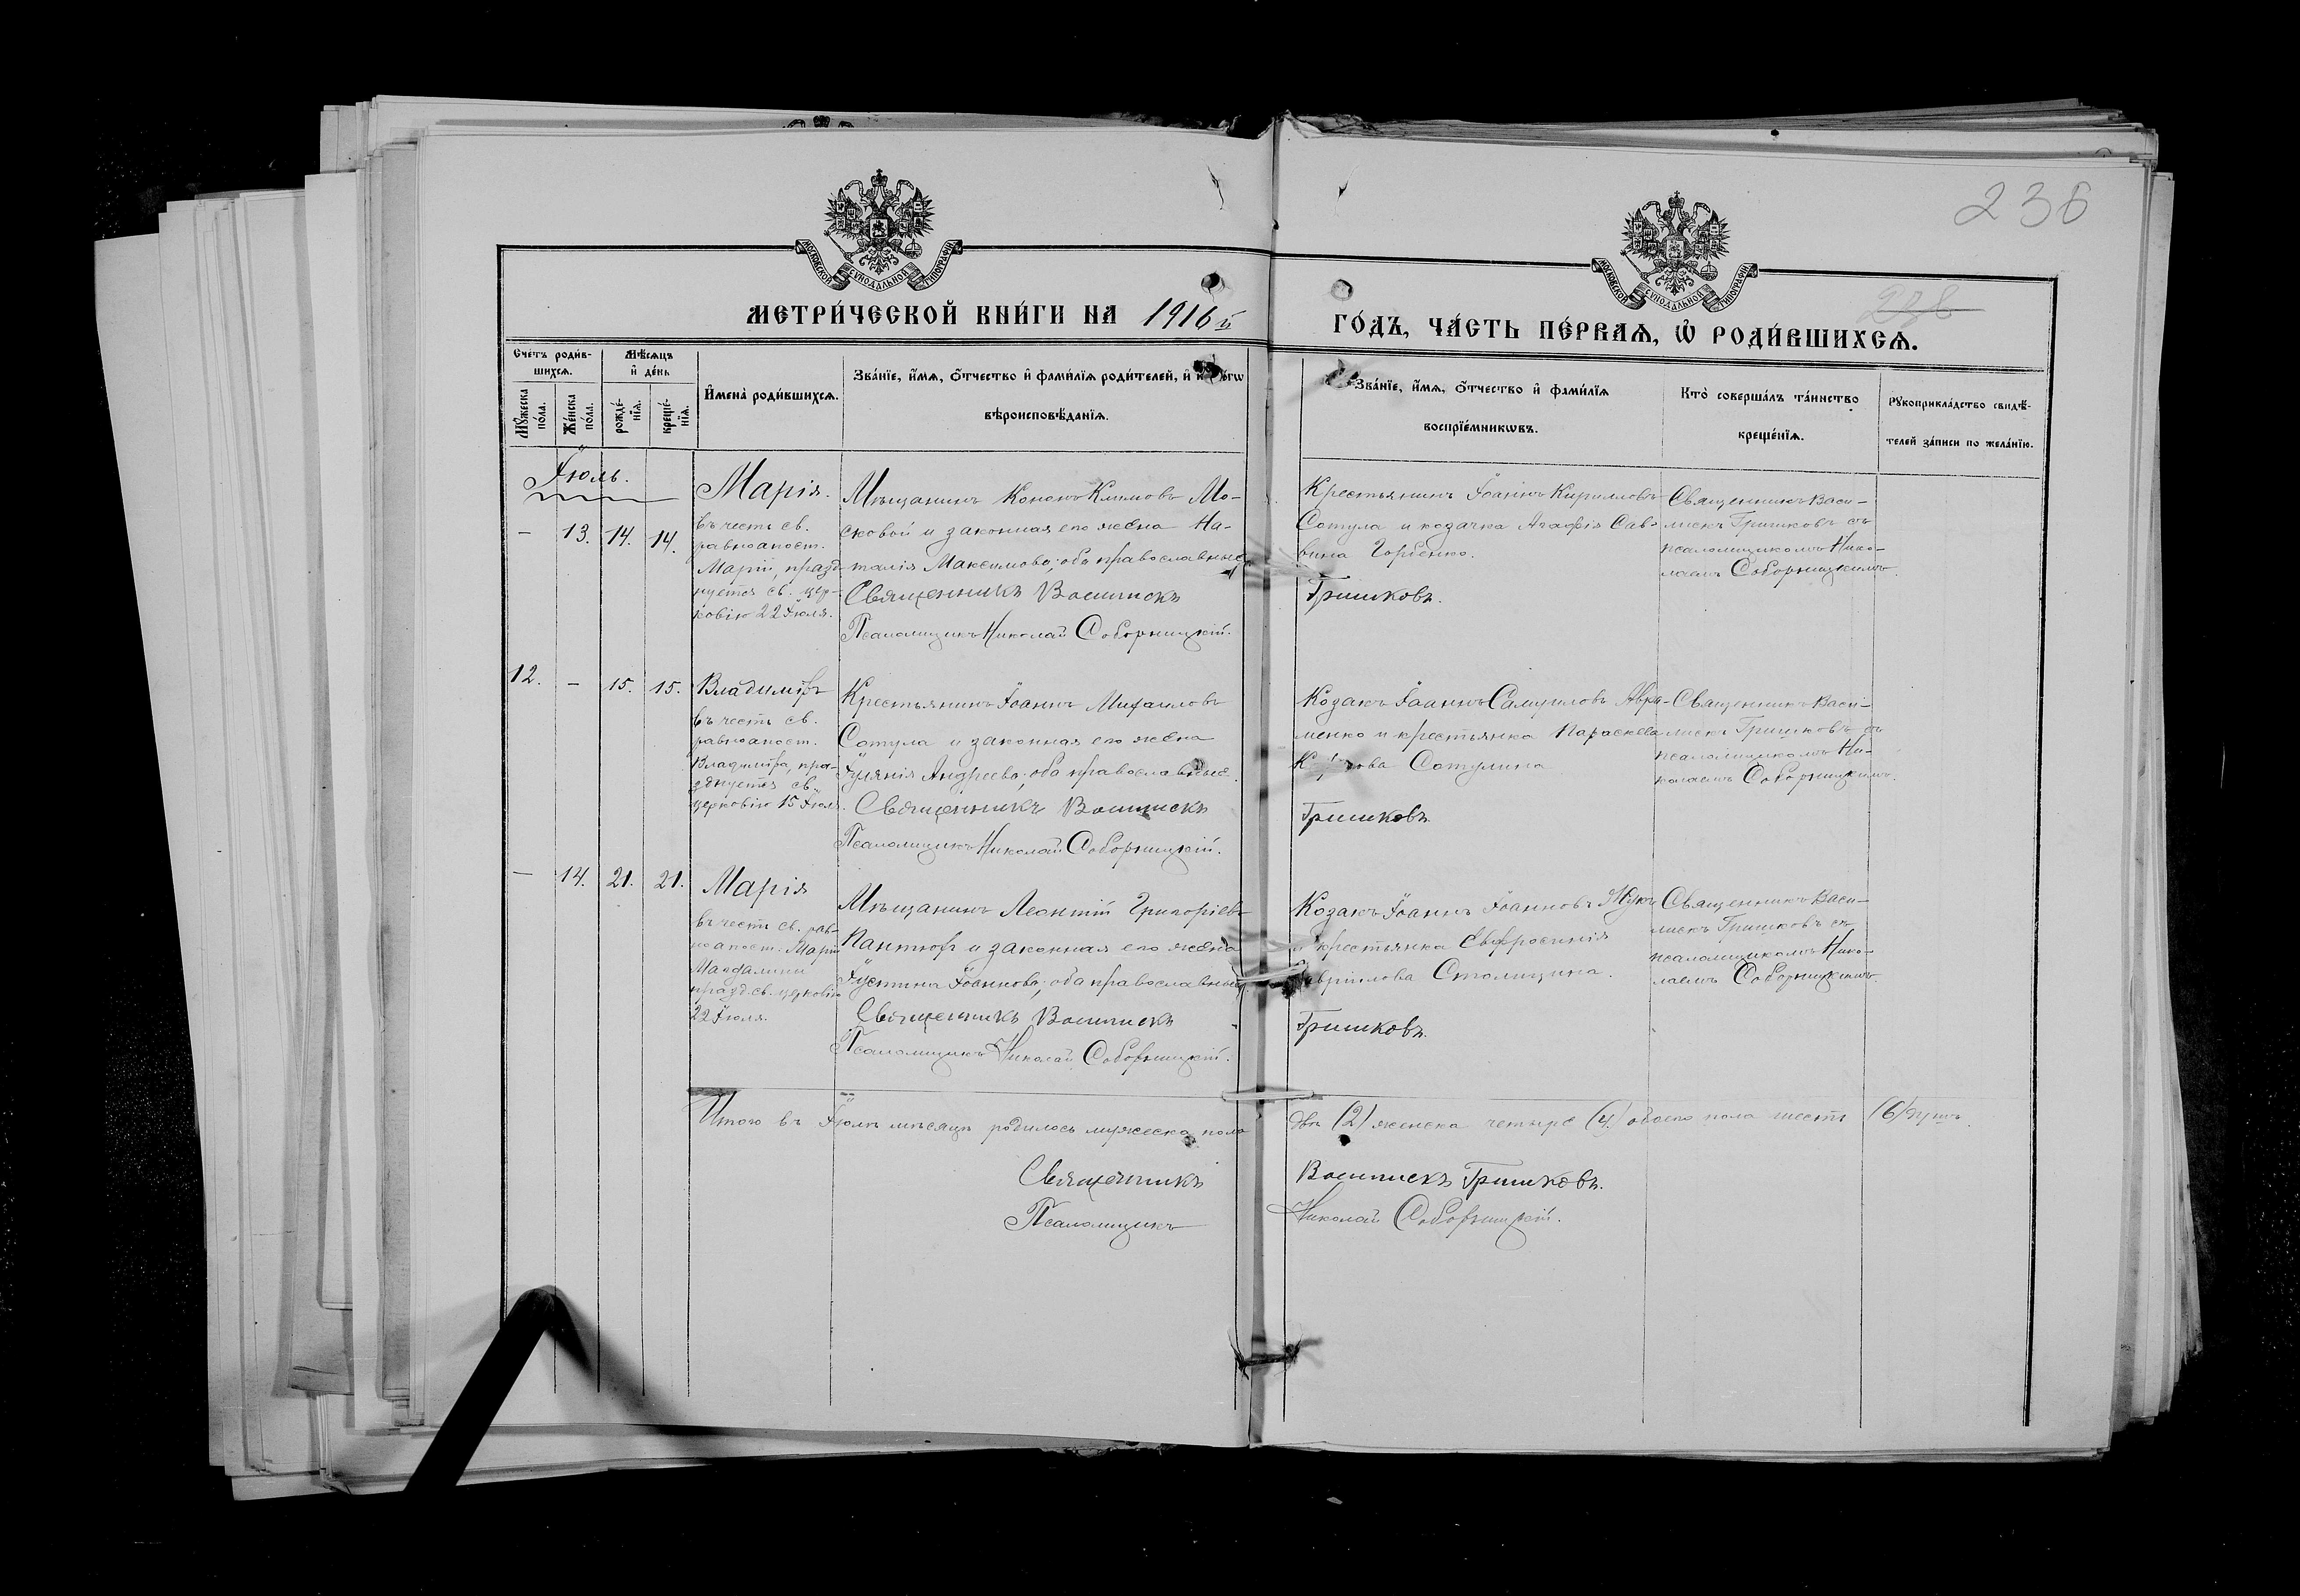 236
МОСКОВСКОЙ СѴНОДАЛЬНОЙ ТИПОГРАФІИ
МОСКОВСКОЙ СѴНОДАЛЬНОЙ ТИПОГРАФІИ
МЕТРИ́ЧЕСКОЙ КНИ́ГИ НА 1916й
ГО́ДЪ, ЧА́СТЬ ПЕ́РВАЯ, Ѡ҆ РОДИ́ВШИХСЯ.
Сче́тъ роди́в-
шихся.
Мꙋ́жеска
по́ла.
Же́нска
по́ла.
Мѣ́сяцъ
и҆ де́нь
рожде́-
нїя.
креще́-
нїя.
И҆мена̀ роди́вшихся.
Зва́нїе, и҆́мя, ѻ҆́тчество и҆ фами́лїя роди́телей, и҆
вѣроисповѣ́данїя.
Зва́нїе, и҆́мя, ѻ҆́тчество и҆ фами́лїя
воспрїе́мникѡвъ.
Кто̀ соверша́лъ та́инство
креще́нїя.
Рꙋкоприкла́дство свидѣ́-
телей за́писи по жела́нїю.
Іюль.
– 13. 14. 14.
Марія.
въ честь св.
равноапост.
Маріи, празд-
нуется св. цер-
ковію 22 Іюля.
Мѣщанинъ Кононъ Климовъ Мо-
сковой и законная его жена На-
талія Максимова; оба православные
Священникъ Василискъ
Псаломщикъ Николай Соборницкій.
Крестьянинъ Іоаннъ Кирилловъ
Сотула и козачка Агафія Сав-
вина Горбенко.
Гришковъ.
Священникъ Васи-
лискъ Гришковъ съ
псаломщикомъ Нико-
лаемъ Соборницкимъ.
12. – 15. 15.
Владиміръ
въ честь св.
равноапост.
Владиміра, пра-
зднуется св.
церковію 15 Іюля.
Крестьянинъ Іоаннъ Михаиловъ
Сотула и законная его жена
Іуліанія Андреева; оба православные.
Священникъ Василискъ
Псаломщикъ Николай Соборницкій.
Козакъ Іоаннъ Самуиловъ Авра-
менко и крестьянка Параскева
Сотулина
Гришковъ
Священникъ Васи-
лискъ Гришковъ съ
псаломщикомъ Ни-
колаемъ Соборницкимъ.
– 14. 21. 21.
Марія
въ честь св. рав-
ноапост. Маріи
Магдалины
празд. св. церковію
22 Іюля.
Мѣщанинъ Леонтій Григоріевъ
и законная его жена
Іустина Іоаннова; оба православные.
Священникъ Василискъ
Псаломщикъ Николай Соборницкій.
Козакъ Іоаннъ Іоанновъ
и крестьянка Евфросинія
Гавріилова
Гришковъ.
Священникъ Васи-
лискъ Гришковъ съ
псаломщикомъ Нико-
лаемъ Соборницкимъ.
Итого въ Іюлѣ мѣсяцѣ родилось мужеска пола
два (2) женска четыре (4) обоего пола шесть (6) душъ.
Священникъ
Василискъ Гришковъ.
Псаломщикъ
Николай Соборницкій.